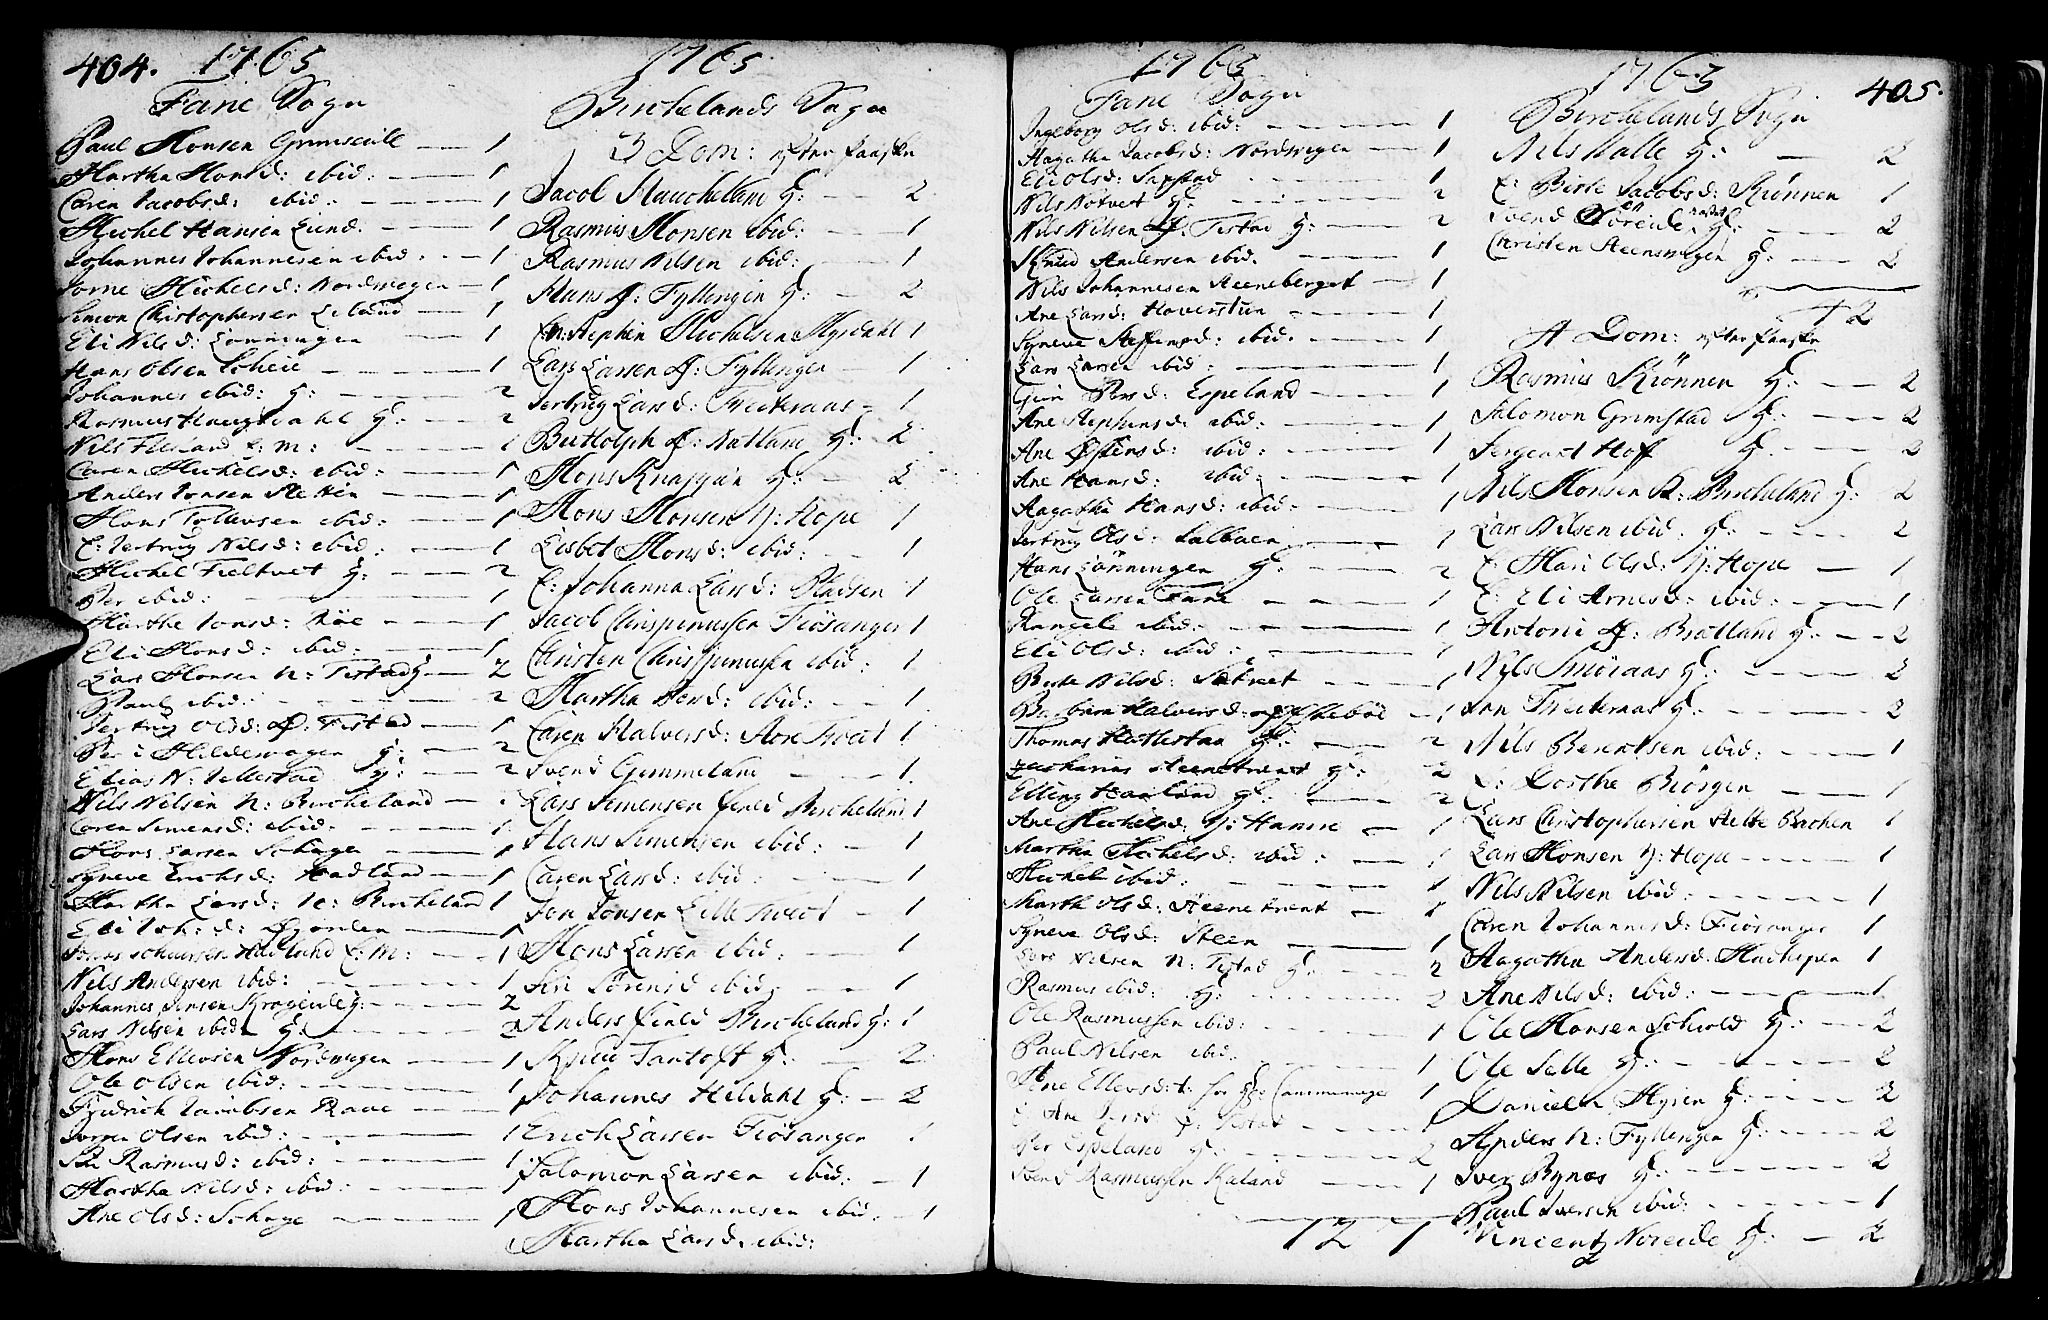 404. 1765
Fane Sogn
Paul Monsen Grimseid 1
Martha Monsd: ibid: 1
Caren Jacobsd: ibid: 1
Michel Hansen Lund. 1
Johannes Johannesen ibid: 1
Michelsd: Nordwegen 1
Simon Christophersen 1
Eli Nilsd: Lønningen 1
Hans Olsen Scheie 1
Johannes ibid: H: 2
Rasmus Haugsdahl H: 2
Nils E: M: 1
Caren Michelsd: ibid: 1
Anders Jonsen Stetten 1
Mons ibid: 1
E: Jertrug Nilsd: ibid: 1
Michel Tveitvet H: 2
Per ibid: 1
Marthe Jonsd: 1
Eli Monsd: ibid: 1
Lars Monsen N: Tistad H: 2
Paul ibid: 2
Jertrug Olsd: Ø: Tistad 1
Per i Hildewagen H: 2
Elias N: Tillestad H: 2
Nils Nilsen N: Bircheland
Caren Simensd: ibid. 1
Mons Larsen Schage 1
Synneve Erichsd: Hadland 1
Martha Larsd: N: Bircheland 1
Eli Joh: d: 1
Hadland E: M: 1
Nils Andersen ibid: 1
Johannes Jensen Krogenes H: 2
Lars Nilsen ibid. H: 2
Mons Ellevsen Nordwegen 1
Ole Olsen ibid: 1
Fridrich Jacobsen Raae 1
Jørgen Olsen ibid: 1
Siri Rasmusd: ibid: 1
Martha Nilsd: ibid: 1
Ane Olsd: Schage 1
1765
Birchelands Sogn
3 Dom: efter Paaske
Jacob Hauchland H: 2
Rasmus Monsen ibid: 1
Rasmus Nilsen ibid: 1
Hans Ø: Fyllengen H: 2
E: Stephen Michelsen Myrdahl 1
Lars Larsen Ø: Fyllingen 1
Jertrug Larsd: Tveiteraas 1
Butolph Ø: Natland H: 2
Mons Knappen H: 2
Mons Monsen Y: Hope 1
Lisbet Monsd: ibid: 1
E: Johanna Larsd: Stadsen 1
Jacob Fiøsanger 1
Christen ibid: 1
Martha Persd: ibid: 1
Caren Halversd: Store Tveet 1
Svend Gimmeland 1
Lars Simensen Field Bircheland 1
Hans Simensen ibid: 1
Caren Larsd: ibid. 1
Jon Jonsen Lille Tveet 1
Mons Larsen ibid: 1
Siri Sørensd ibid: 1
Anders Field Bircheland H: 1
Knud Tantoft H: 2
Johannes Hildahl H: 2
Erich Larsen Fiøsanger 1
Salomon Larsen ibid: 1
Mons Johannesen ibid. 1
Martha Larsd. ibid:
1763
Fane Sogn
Ingeborg Olsd: ibid: 1
Hagatha Jacobsd: Nordwegen 1
Eli Olsd: 1
Nils H: 2
Nils Nilsen Ø: Tistad H: 2
Knud Andersen ibid. 1
Nils Johannesen Steeneberget 1
Ane Larsd: Haverstun 1
Synneve Steffensd: ibid. 1
Lars Larsen ibid: 1
Giøri Espeland 1
Ane Stephensd: ibid: 1
Ane ibid: 1
Ane Hansd: ibid: 1
Hagatha Hansd: ibid: 1
Jertrug Olsd: Kalbaen 1
Hans Lønningen H: 2
Ole Larsen Fane 1
Rangele ibid: 1
Eli Olsd: ibid: 1
Birte Nilsd: Sætveet 1
Barbara Halversd: 1
Thomas Hatlestad H: 2
Zacharias Steenetvedt H: 2
Elling Hadland H: 2
Ane Michelsd: Y: Hamre 1
Martha Michelsd: ibid: 1
Michel ibid: 1
Marth Olsd: Steenetvedt 1
Synneve Olsd: Steen 1
Lars Nilsen N: Tistad H: 2
Rasmus ibid: H: 2
Ole Rasmussen ibid: 1
Paul Nilsen ibid. 1
Ane Ellevsd: 1
Ane Tistad
Per Espeland H: 2
Svend Rasmussen Kaland 1
121
1763 405.
Birchelands Sogn
Nils Nalle H: 2
E: Birte Jacobsd: Skiønnen 1
Svend Noreide H: 2
Christen Steenswegen H: 2
42
4 Dom: efter Paaske
Rasmus Skiønnen H: 2
Salomon Grimstad H: 2
Sergeant Hoff H: 2
Nils Monsen N: Bircheland H: 2
Lars Nilsen ibid. H: 2
E: Mari Olsd: Y: Hope 1
E: Eli Arnesd: ibid: 1
Antoni Ø: Bratland H: 2
Nils Smøraas H: 2
Jon Tveiteraas H: 2
Nils Berntsen ibid: 1
E: Dorthe Biørgen 1
Lars Christophersen Helle Bachen 1
Lars Monsen Y: Hope 1
Nils Nilsen ibid: 1
Caren Johannesd: Fiøsanger 1
Hagatha Andersd: 1
Ane Nilsd: ibid: 1
Ole Monsen Schiold H: 2
Ole Sælle H: 2
Daniel H: 2
Anders N: Fyllingen H: 2
Iver Bynes H: 2
Paul Iversen ibid: 1
Vincentz Noreide H: 2